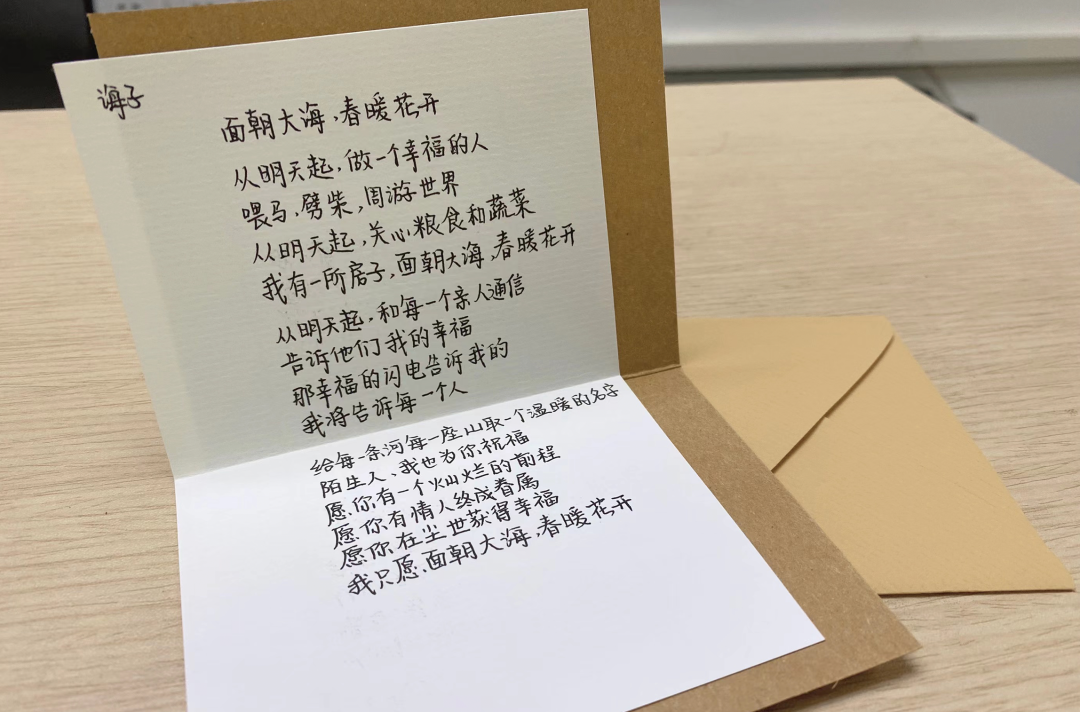 海子
面朝大海,春暖花开
从明天起,做一个幸福的人
喂马,劈柴,周游世界
从明天起,关心粮食和蔬菜
我有一所房子,面朝大海,春暖花开
从明天起,和每一个亲人通信
告诉他们我的幸福
那幸福的闪电告诉我的
我将告诉每一个人
给每一条河每一座山取一个温暖的名字
陌生人、我也为你祝福
愿你有一个灿烂的前程
愿你有情人终成眷属
愿你在尘世获得幸福
我只愿面朝大海,春暖花开